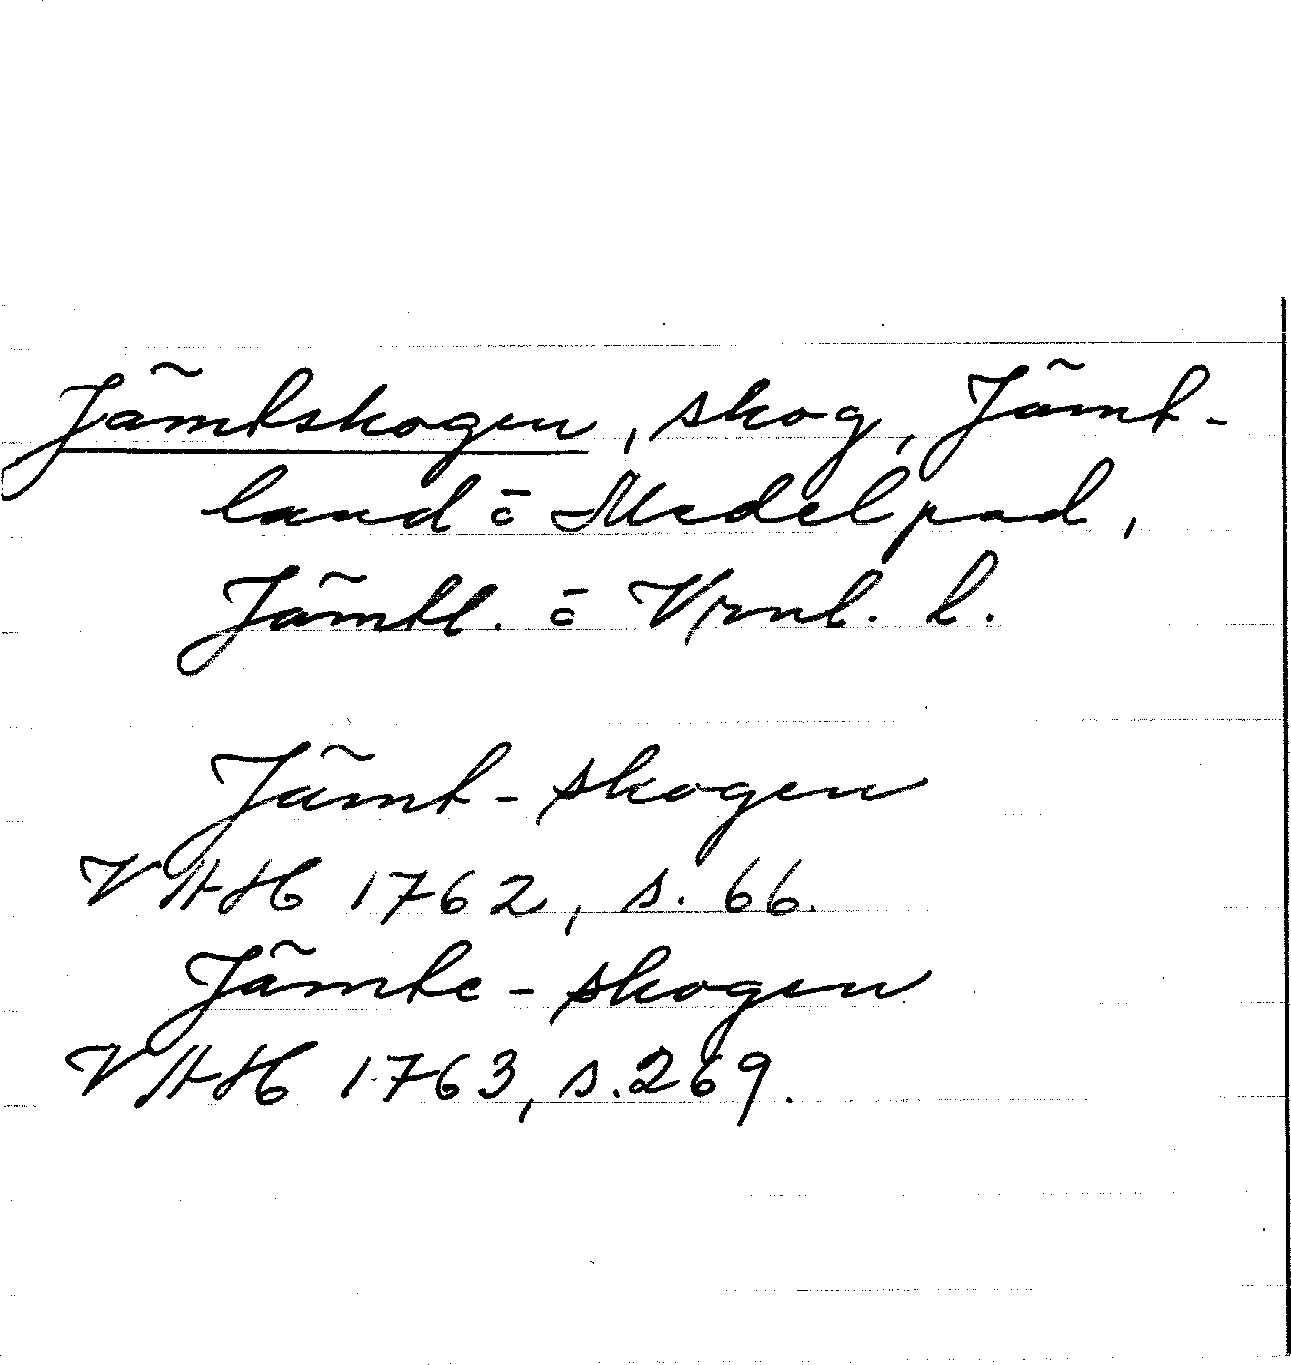 Jämtskogen, skog, Jämt-
land o Medelpad,
Jämtl. o Vrnl. l.
Jämt-skogen
VAH 1762, s. 66.
Jämte-skogen
VAH 1763, s. 269.